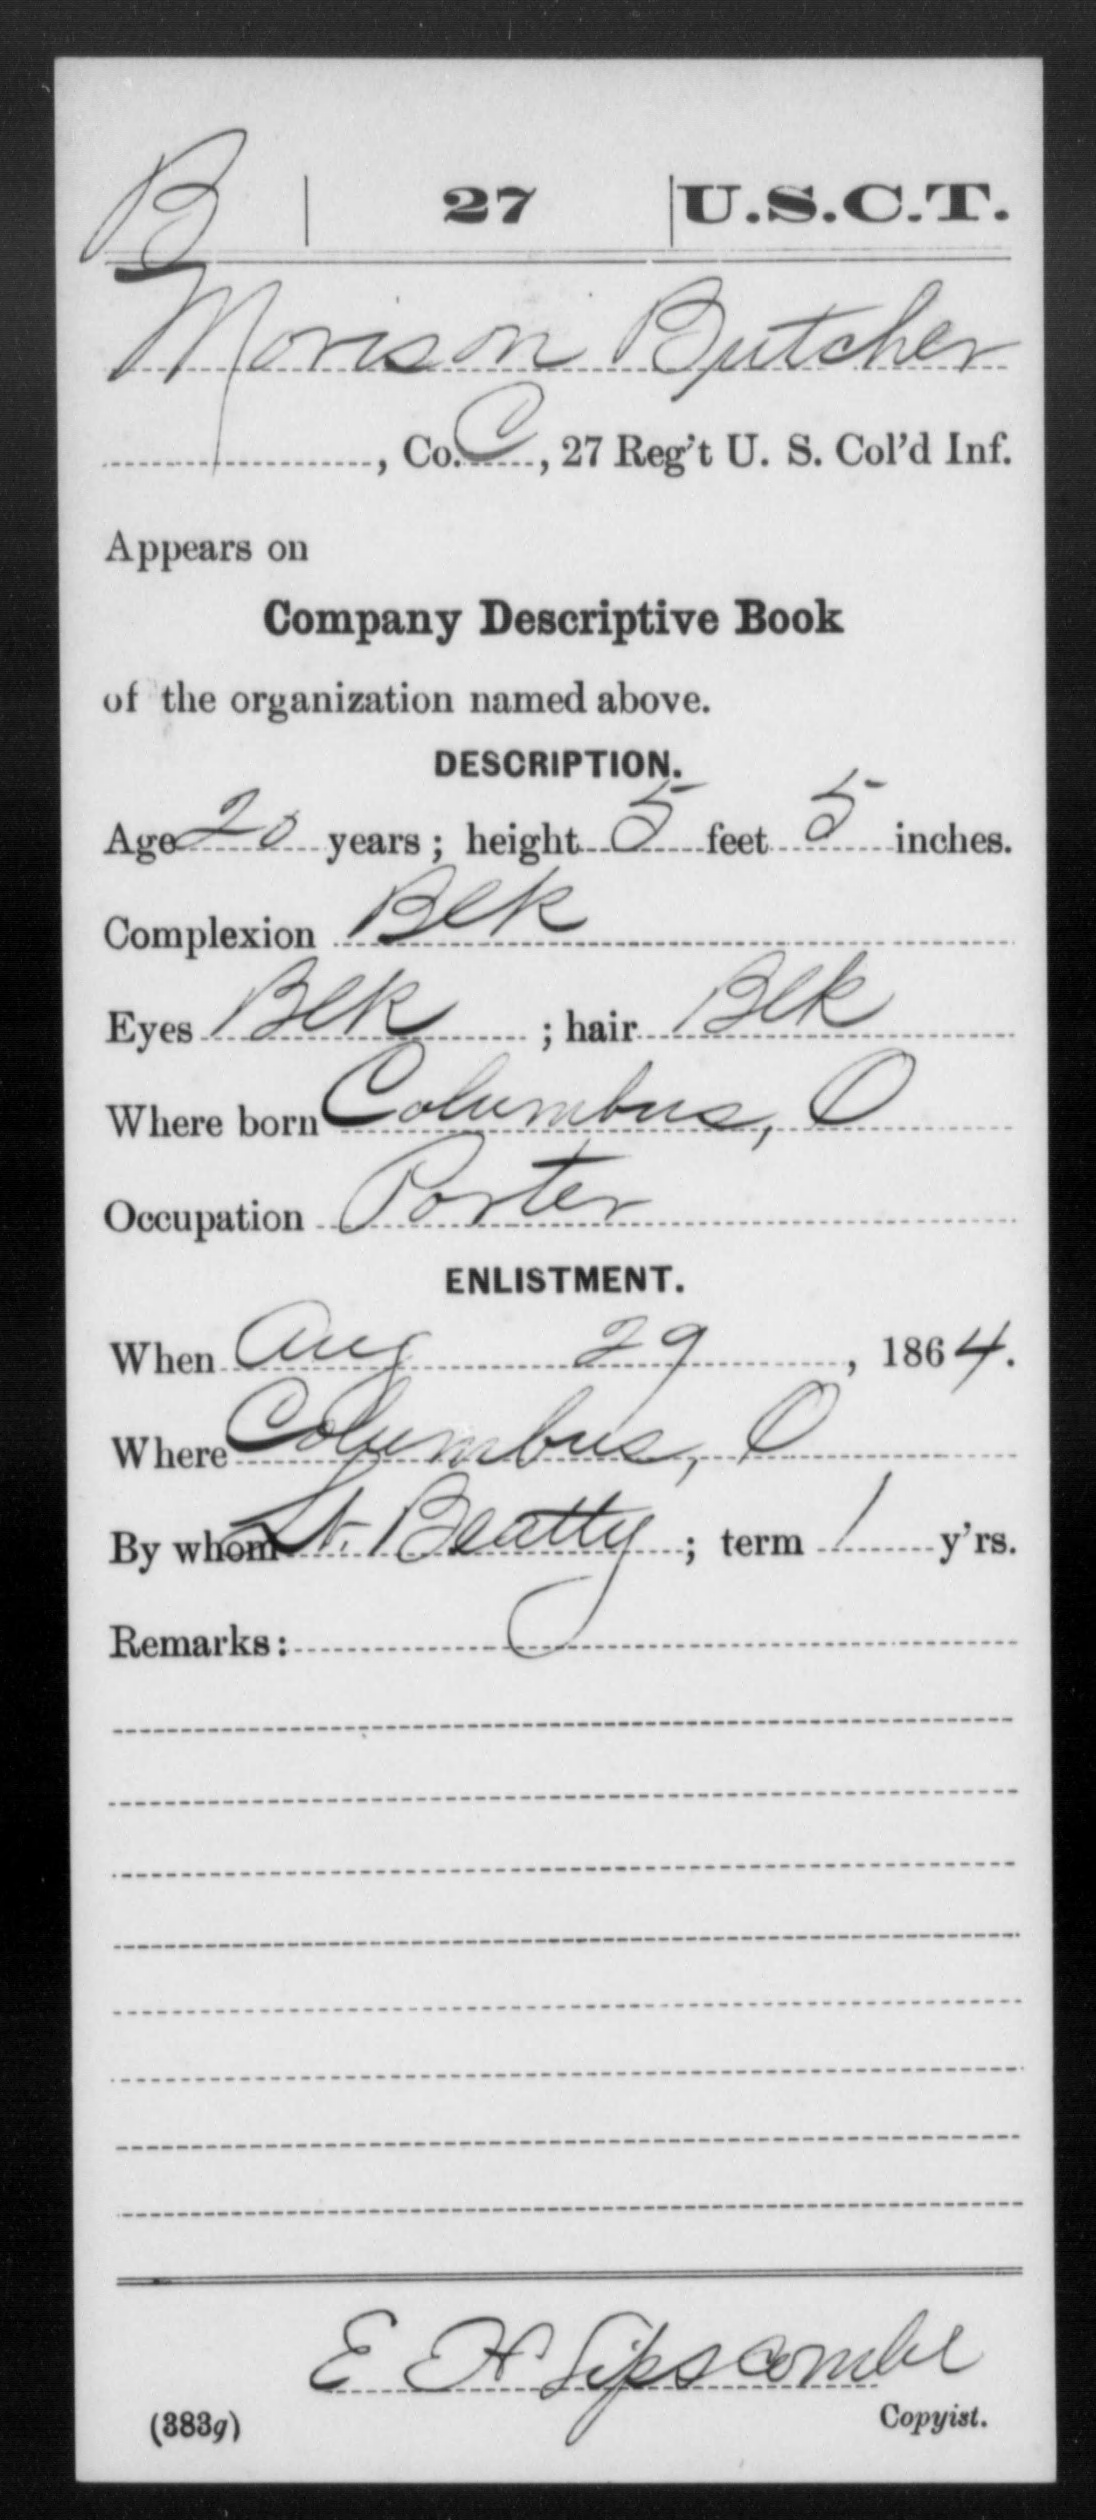 B | 27 | U.S.C.T.
Morison Butcher
, Co. C, 27 Reg't U. S. Col'd Inf.
Appears on
Company Descriptive Book
of the organization named above.
DESCRIPTION.
Age 20 years; height 5 feet 5 inches.
Complexion Blk
Eyes Blk ; hair Blk
Where born Columbus, O
Occupation Porter
ENLISTMENT.
When Aug 29, 1864.
Where Columbus, O
By whom Lt. Beatty; term 1 y'rs.
Remarks:
E H Lipscombe
(383g) Copyist.